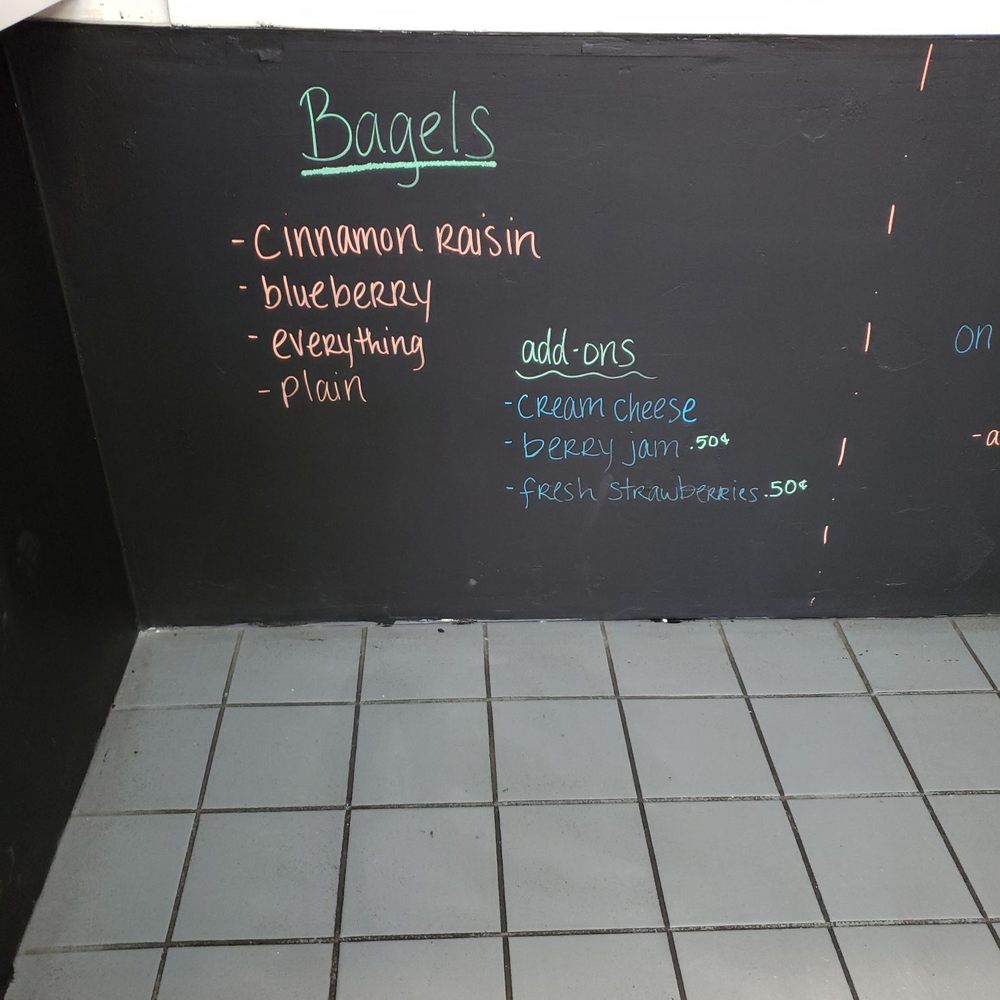 Bagels
- cinnamon raisin
- blueberry
- everything
- plain
add-ons
- cream cheese
- berry jam .50¢
- fresh strawberries .50¢
on
- a